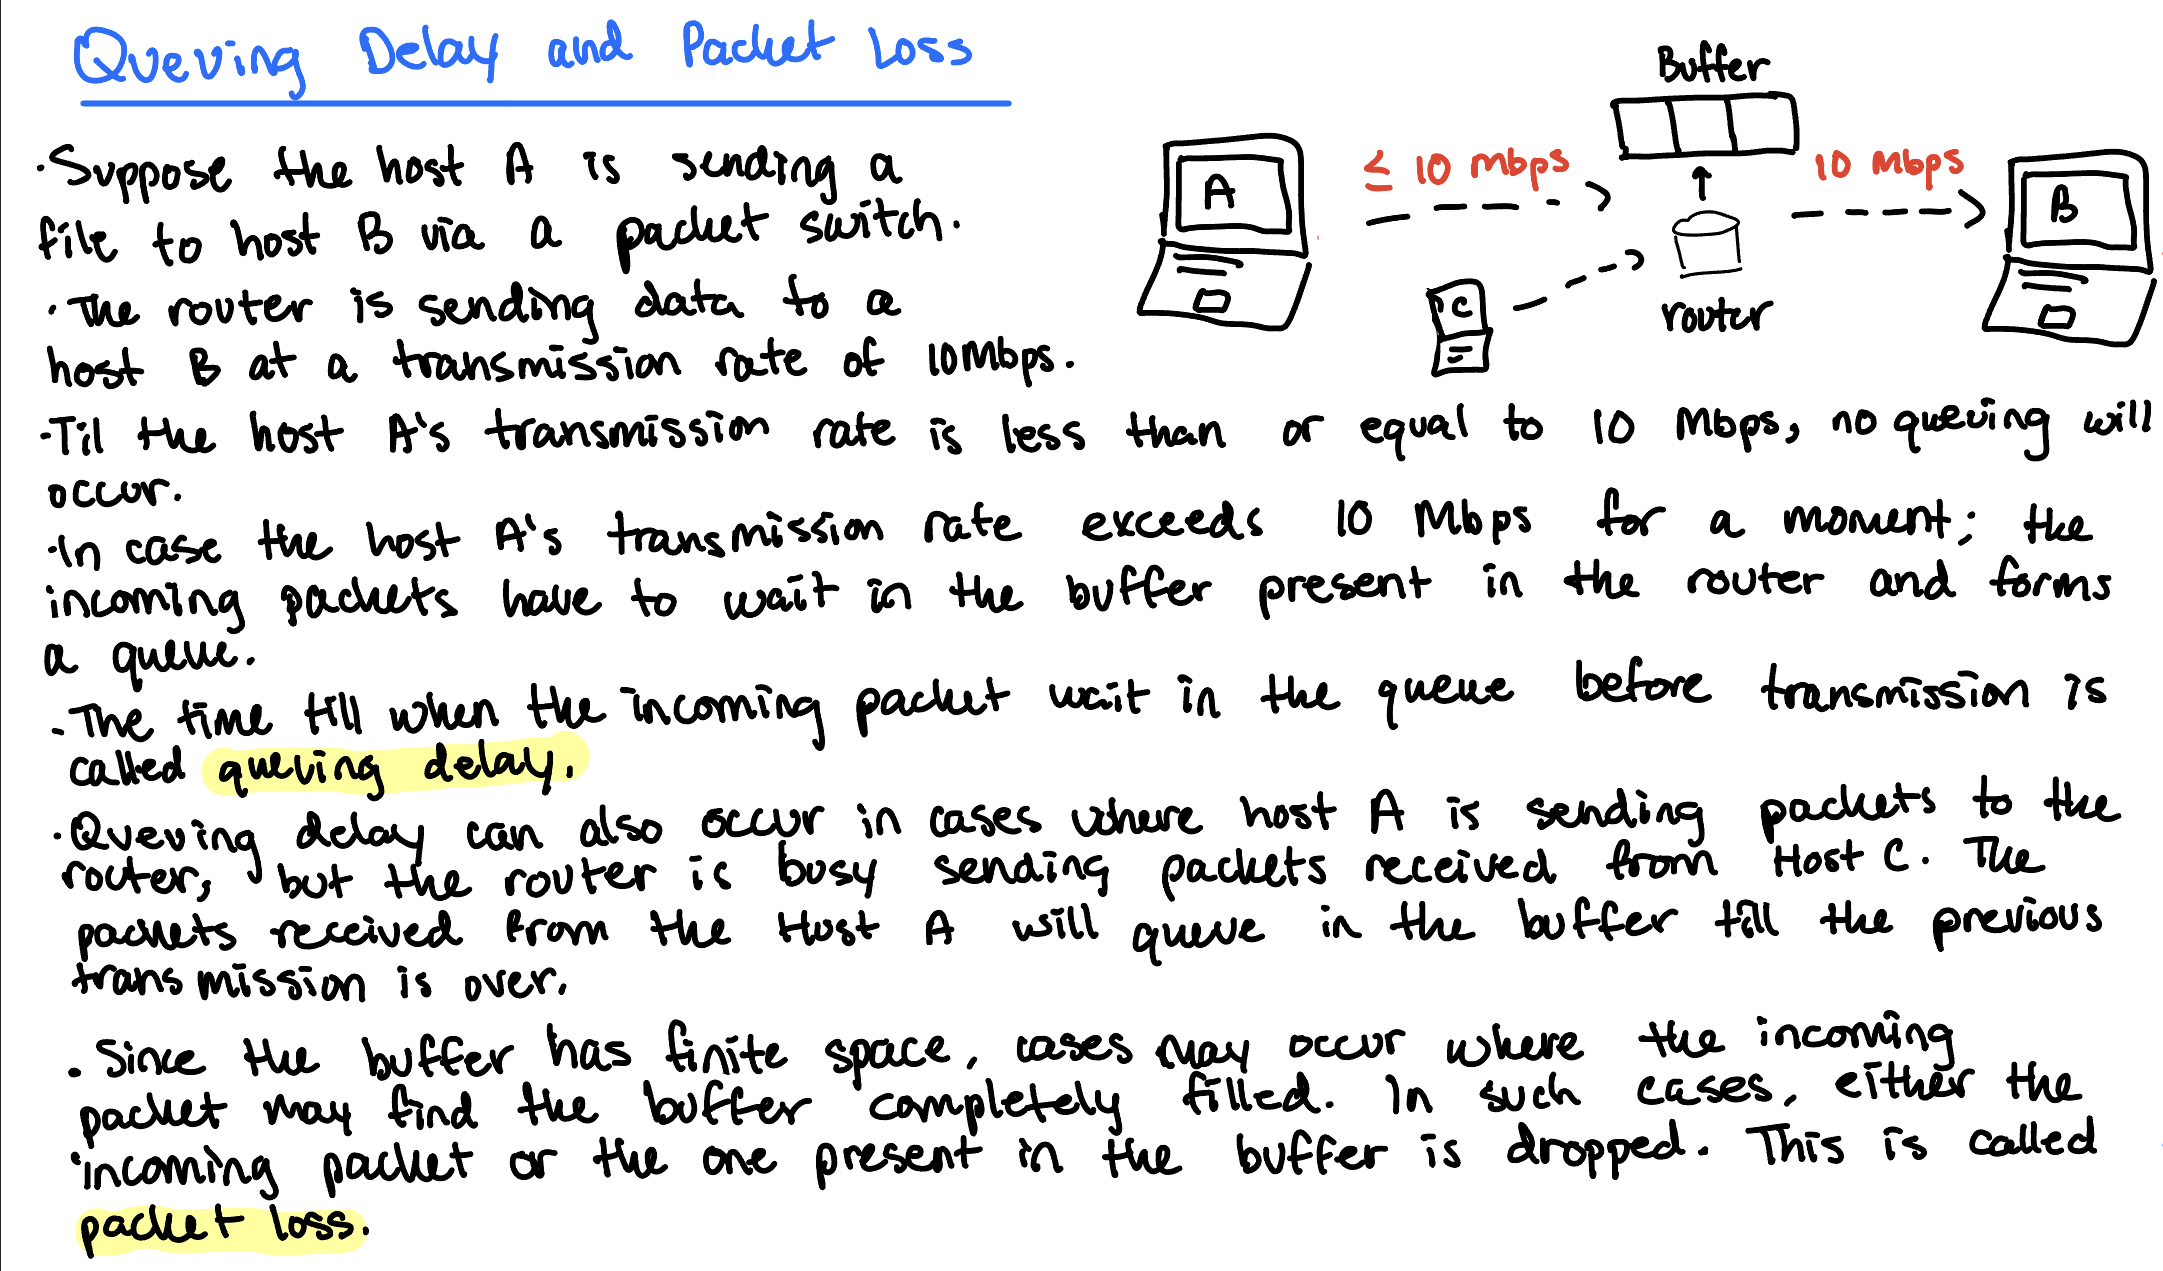 Queuing Delay and Packet Loss
Buffer
A
≤ 10 mbps
10 Mbps
B
C
router
·Suppose the host A is sending a
file to host B via a packet switch.
·The router is sending data to a
host B at a transmission rate of 10Mbps.
·Til the host A's transmission rate is less than or equal to 10 Mbps, no queuing will
occur.
·In case the host A's transmission rate exceeds 10 Mbps for a moment; the
incoming packets have to wait in the buffer present in the router and forms
a queue.
·The time till when the incoming packet wait in the queue before transmission is
called queuing delay.
·Queuing delay can also occur in cases where host A is sending packets to the
router, but the router is busy sending packets received from Host C. The
packets received from the Host A will queue in the buffer till the previous
transmission is over.
·Since the buffer has finite space, cases may occur where the incoming
packet may find the buffer completely filled. In such cases, either the
incoming packet or the one present in the buffer is dropped. This is called
packet loss.